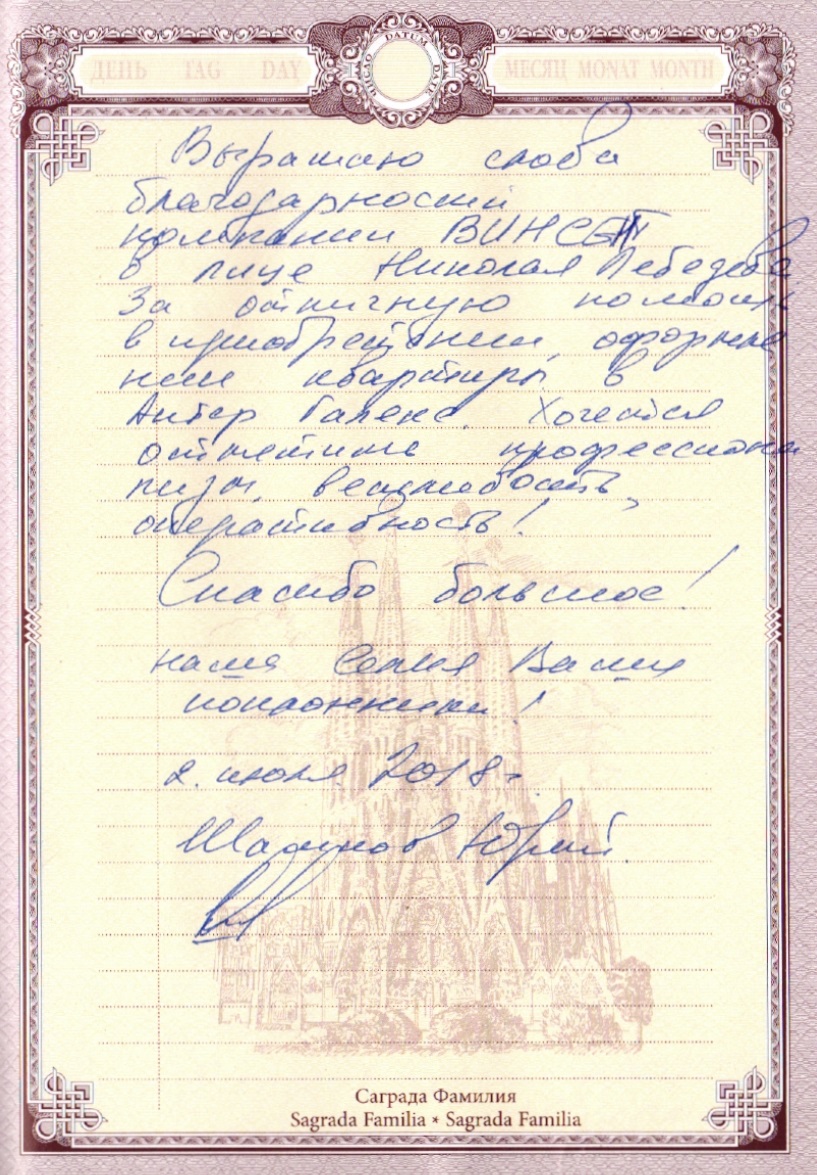 ДЕНЬ TAG DAY
DATUM
МЕСЯЦ MONAT MONTH
Выражаю слова
благодарности
компании ВИНСЕНТ
в лице Николая Лебедева
За отличную помощь
в приобретении, оформле
нии квартиры в
Антер Галекс. Хочется
отметить профессиона
лизм, вежливость,
оперативность!
Спасибо большое!
наша Семья Ваши
поклонники!
2. июля 2018г.
Юрий.
Саграда Фамилия
Sagrada Familia * Sagrada Familia